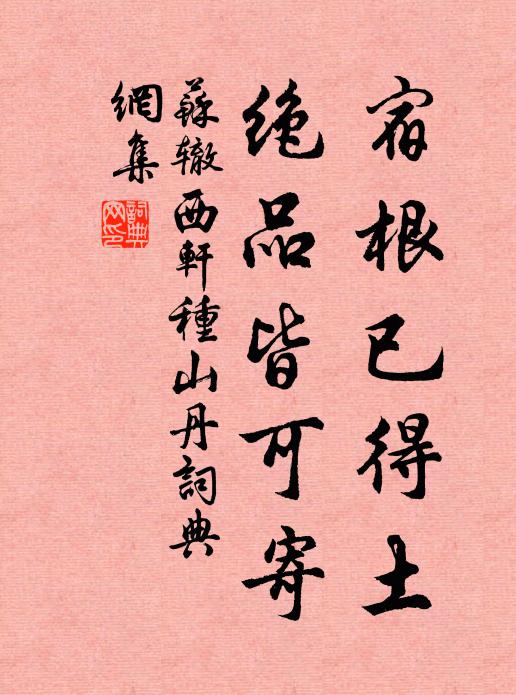 宿根已得土
絶品皆可寄
蘇轍西軒種山丹詞典
網集
詞典
網印